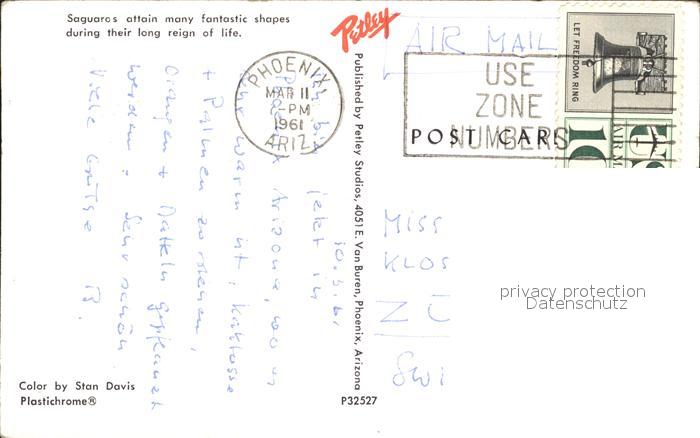 Saguaros attain many fantastic shapes
during their long reign of life.
Petley
AIR MAIL
LET FREEDOM RING
PHOENIX
MAR 11
-PM
1961
ARIZ.
USE
ZONE
NUMBERS
POST CARD
10
US
AIR M
Published by Petley Studios, 4051 E. Van Buren, Phoenix, Arizona
10.3.61
Ich bin jetzt in
Phoenix Arizona, wo es
sehr warm ist, Kaktusse
+ Palmen zu stehen,
Orangen + Datteln gepflanzt
werden. Sehr schön
Viele Grüsse
Miss
KLOS
ZÜ
Swi
privacy protection
Datenschutz
Color by Stan Davis
Plastichrome®
P32527